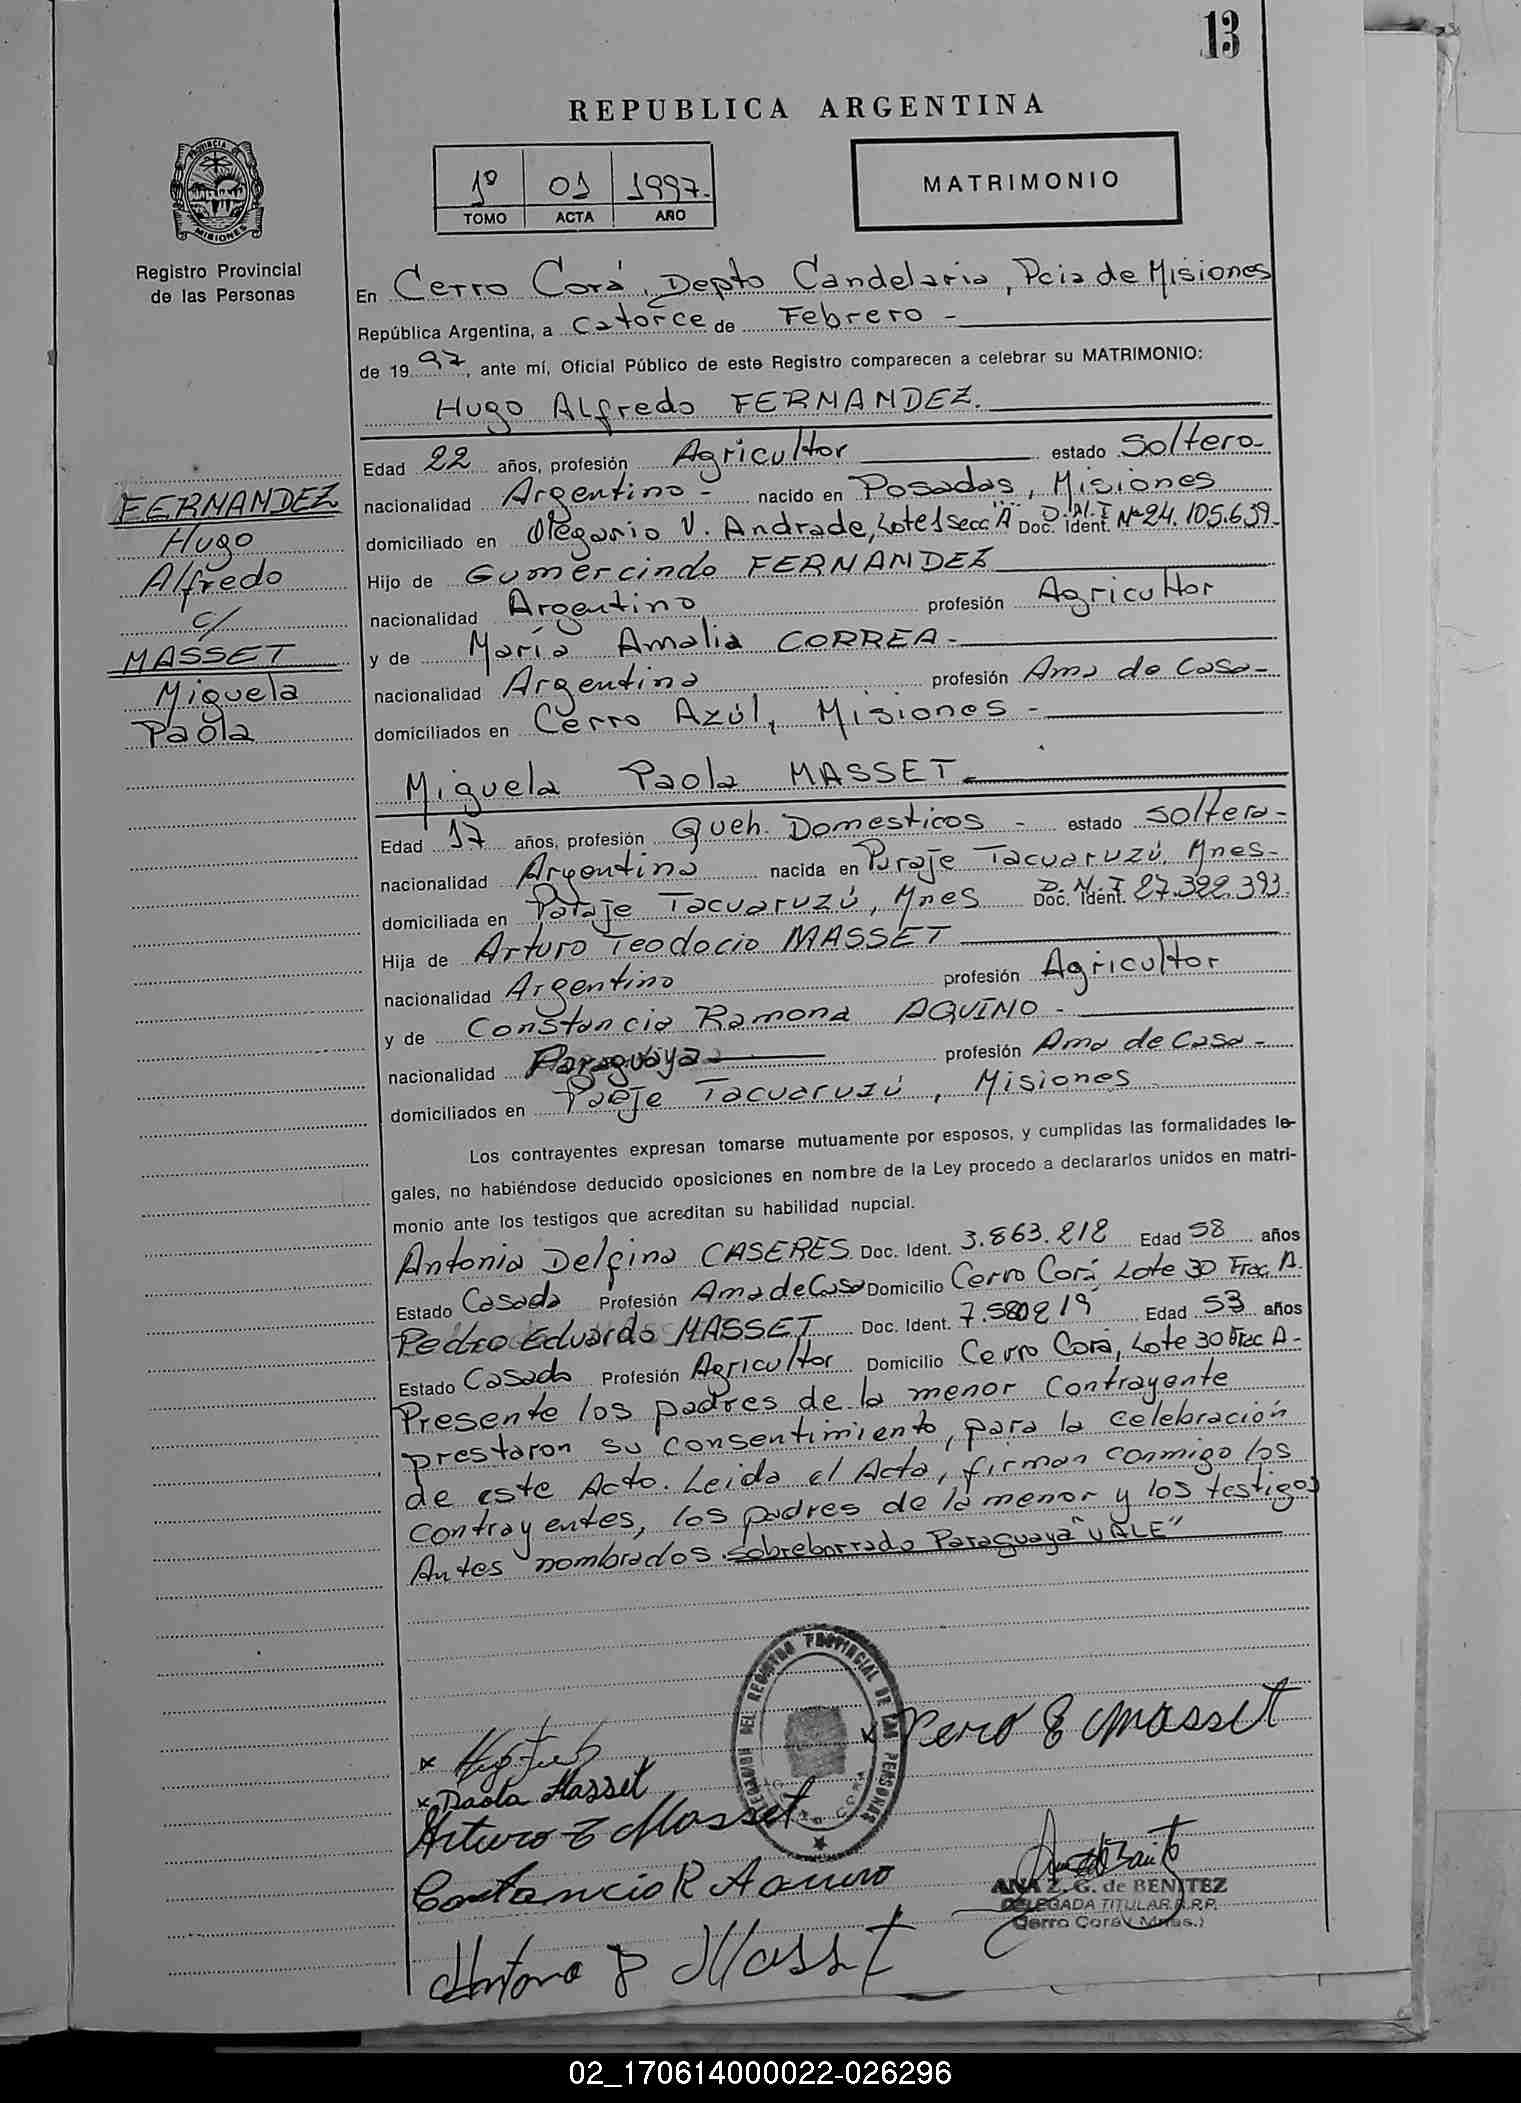 13
REPUBLICA ARGENTINA
1º 01 1997.-
TOMO ACTA AÑO
MATRIMONIO
PROVINCIA DE
MISIONES
Registro Provincial
de las Personas
En Cerro Corá, Depto Candelaria, Pcia de Misiones
República Argentina, a Catorce de Febrero -
de 1997, ante mí, Oficial Público de este Registro comparecen a celebrar su MATRIMONIO:
Hugo Alfredo FERNANDEZ.
Edad 22 años, profesión Agricultor estado Soltero-
nacionalidad Argentino - nacido en Posadas, Misiones
domiciliado en Olegario V. Andrade, Lote 1 secc "A" D.N.I Doc. Ident. Nº 24.105.659-
Hijo de Gumercindo FERNANDEZ
nacionalidad Argentino profesión Agricultor
y de María Amalia CORREA-
nacionalidad Argentina profesión Ama de Casa-
domiciliados en Cerro Azúl, Misiones -
FERNANDEZ
Hugo
Alfredo
c/
MASSET
Miguela
Paola
Miguela Paola MASSET-
Edad 17 años, profesión Queh. Domesticos - estado soltera-
nacionalidad Argentina nacida en Paraje Tacuaruzú, Mnes-
domiciliada en Paraje Tacuaruzú, Mnes D.N.I Doc. Ident. 27.322.393.
Hija de Arturo Teodocio MASSET
nacionalidad Argentino profesión Agricultor
y de Constancia Ramona AQUINO -
nacionalidad Paraguaya profesión Ama de Casa -
domiciliados en Paraje Tacuaruzú, Misiones
Los contrayentes expresan tomarse mutuamente por esposos, y cumplidas las formalidades le-
gales, no habiéndose deducido oposiciones en nombre de la Ley procedo a declararlos unidos en matri-
monio ante los testigos que acreditan su habilidad nupcial.
Antonia Delfina CASERES Doc. Ident. 3.863.212 Edad 58 años
Estado Casada Profesión Ama de Casa Domicilio Cerro Corá Lote 30 Frac A.
Pedro Eduardo MASSET Doc. Ident. 7.580219 Edad 53 años
Estado Casado Profesión Agricultor Domicilio Cerro Corá, Lote 30 Frac A-
Presente los padres de la menor Contrayente
prestaron su consentimiento, para la celebración
de este Acto. Leida el Acta, firman conmigo los
contrayentes, los padres de la menor y los testigos
Antes nombrados. sobreborrado Paraguaya "VALE"
DEL REGISTRO PROVINCIAL DE LAS PERSONAS
x Pero E Masset
x
x Paola Masset
Arturo T Masset
Costancio R Aquino
Antona D Masset
ANA Z. G. de BENITEZ
DELEGADA TITULAR R.R.P.
Cerro Corá (Mnes.)
02_170614000022-026296